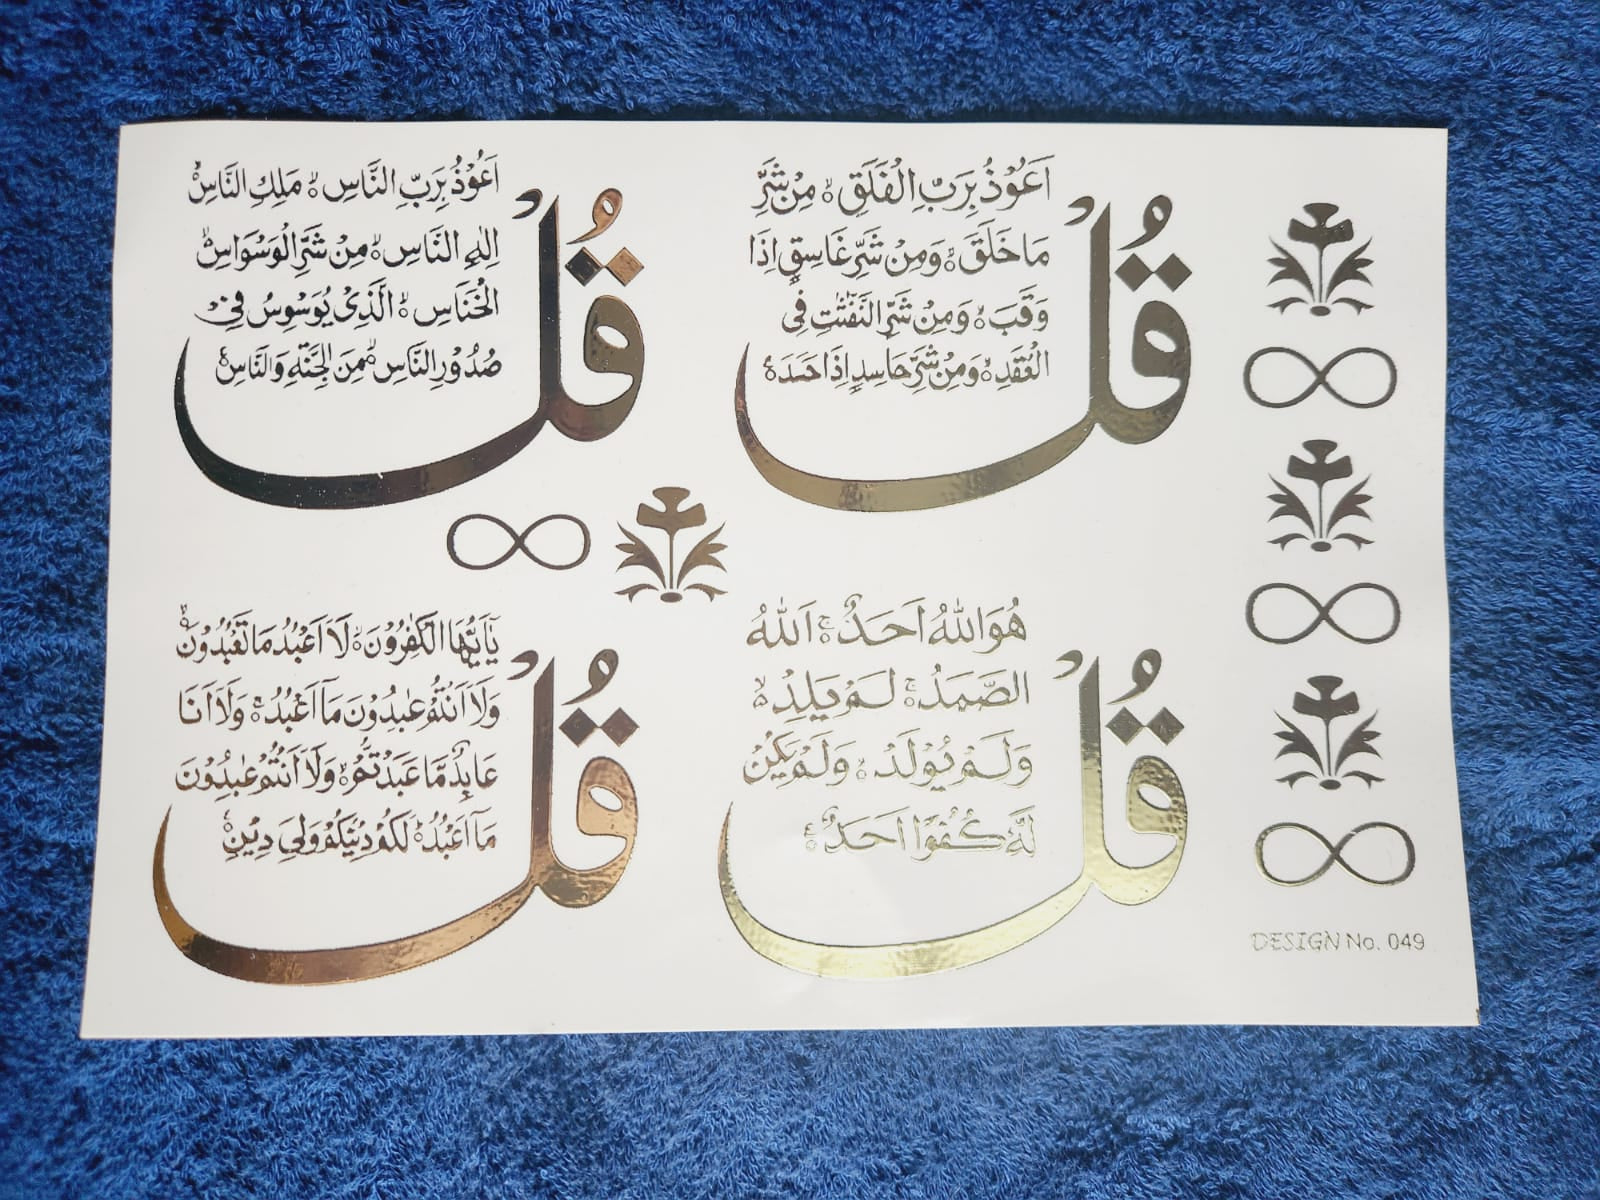 قُلْ
اَعُوْذُ بِرَبِّ الْفَلَقِ ۙ مِنْ شَرِّ
مَا خَلَقَ ۙ وَمِنْ شَرِّ غَاسِقٍ اِذَا
وَقَبَ ۙ وَمِنْ شَرِّ النَّفّٰثٰتِ فِى
الْعُقَدِ ۙ وَمِنْ شَرِّ حَاسِدٍ اِذَا حَسَدَ ۠
قُلْ
اَعُوْذُ بِرَبِّ النَّاسِ ۙ مَلِكِ النَّاسِ ۙ
اِلٰهِ النَّاسِ ۙ مِنْ شَرِّ الْوَسْوَاسِ ۙ
الْخَنَّاسِ ۙ الَّذِىْ يُوَسْوِسُ فِىْ
صُدُوْرِ النَّاسِ ۙ مِنَ الْجِنَّةِ وَالنَّاسِ ۠
قُلْ
هُوَ اللّٰهُ اَحَدٌ ۚ اَللّٰهُ
الصَّمَدُ ۚ لَمْ يَلِدْ ۙ
وَلَمْ يُوْلَدْ ۙ وَلَمْ يَكُنْ
لَّهٗ كُفُوًا اَحَدٌ ۠
قُلْ
يٰٓاَيُّهَا الْكٰفِرُوْنَ ۙ لَا اَعْبُدُ مَا تَعْبُدُوْنَ ۙ
وَلَا اَنْتُمْ عٰبِدُوْنَ مَآ اَعْبُدُ ۚ وَلَا اَنَا
عَابِدٌ مَّا عَبَدْتُّمْ ۙ وَلَا اَنْتُمْ عٰبِدُوْنَ
مَآ اَعْبُدُ ۙ لَكُمْ دِيْنُكُمْ وَلِىَ دِيْنِ ۠
DESIGN No. 049